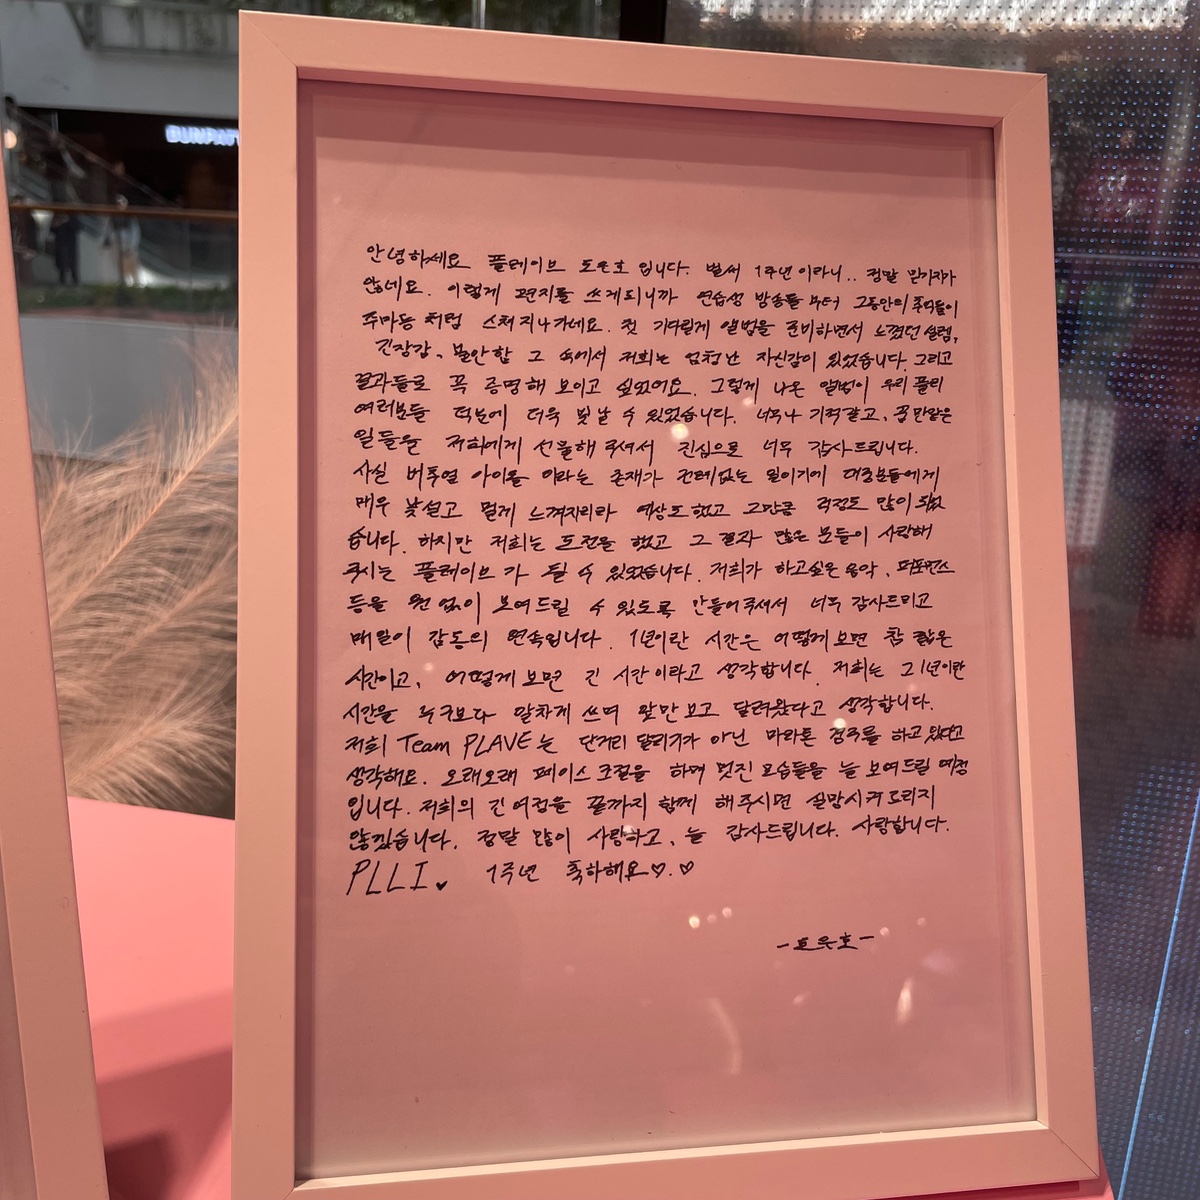 안녕하세요 플레이브 도은호 입니다. 벌써 1주년 이라니.. 정말 믿기지가
않네요. 이렇게 편지를 쓰게되니까 연습생 방송들 부터 그동안의 추억들이
주마등 처럼 스쳐 지나가네요. 첫 기다릴게 앨범을 준비하면서 느꼈던 설렘,
긴장감, 불안함 그 속에서 저희는 엄청난 자신감이 있었습니다. 그리고
결과들로 꼭 증명해 보이고 싶었어요. 그렇게 나온 앨범이 우리 플리
여러분들 덕분에 더욱 빛날 수 있었습니다. 너무나 기적같고, 꿈만같은
일들을 저희에게 선물해 주셔서 진심으로 너무 감사드립니다.
사실 버추얼 아이돌 이라는 존재가 전례없는 일이기에 대중분들에게
매우 낯설고 멀게 느껴지리라 예상도 했고 그만큼 걱정도 많이 되었
습니다. 하지만 저희는 도전을 했고 그 결과 많은 분들이 사랑해
주시는 플레이브가 될 수 있었습니다. 저희가 하고싶은 음악, 퍼포먼스
등을 원 없이 보여드릴 수 있도록 만들어주셔서 너무 감사드리고
매일이 감동의 연속입니다. 1년이란 시간은 어떻게 보면 참 짧은
시간이고, 어떻게 보면 긴 시간 이라고 생각합니다. 저희는 그 1년이란
시간을 누구보다 알차게 쓰며 앞만 보고 달려왔다고 생각합니다.
저희 Team PLAVE는 단거리 달리기가 아닌 마라톤 경주를 하고 있다고
생각해요. 오래오래 페이스 조절을 하며 멋진 모습들을 늘 보여드릴 예정
입니다. 저희의 긴 여정을 끝까지 함께 해주시면 실망시켜 드리지
않겠습니다. 정말 많이 사랑하고, 늘 감사드립니다. 사랑합니다.
PLLI♥ 1주년 축하해요♡.♡
-도은호-